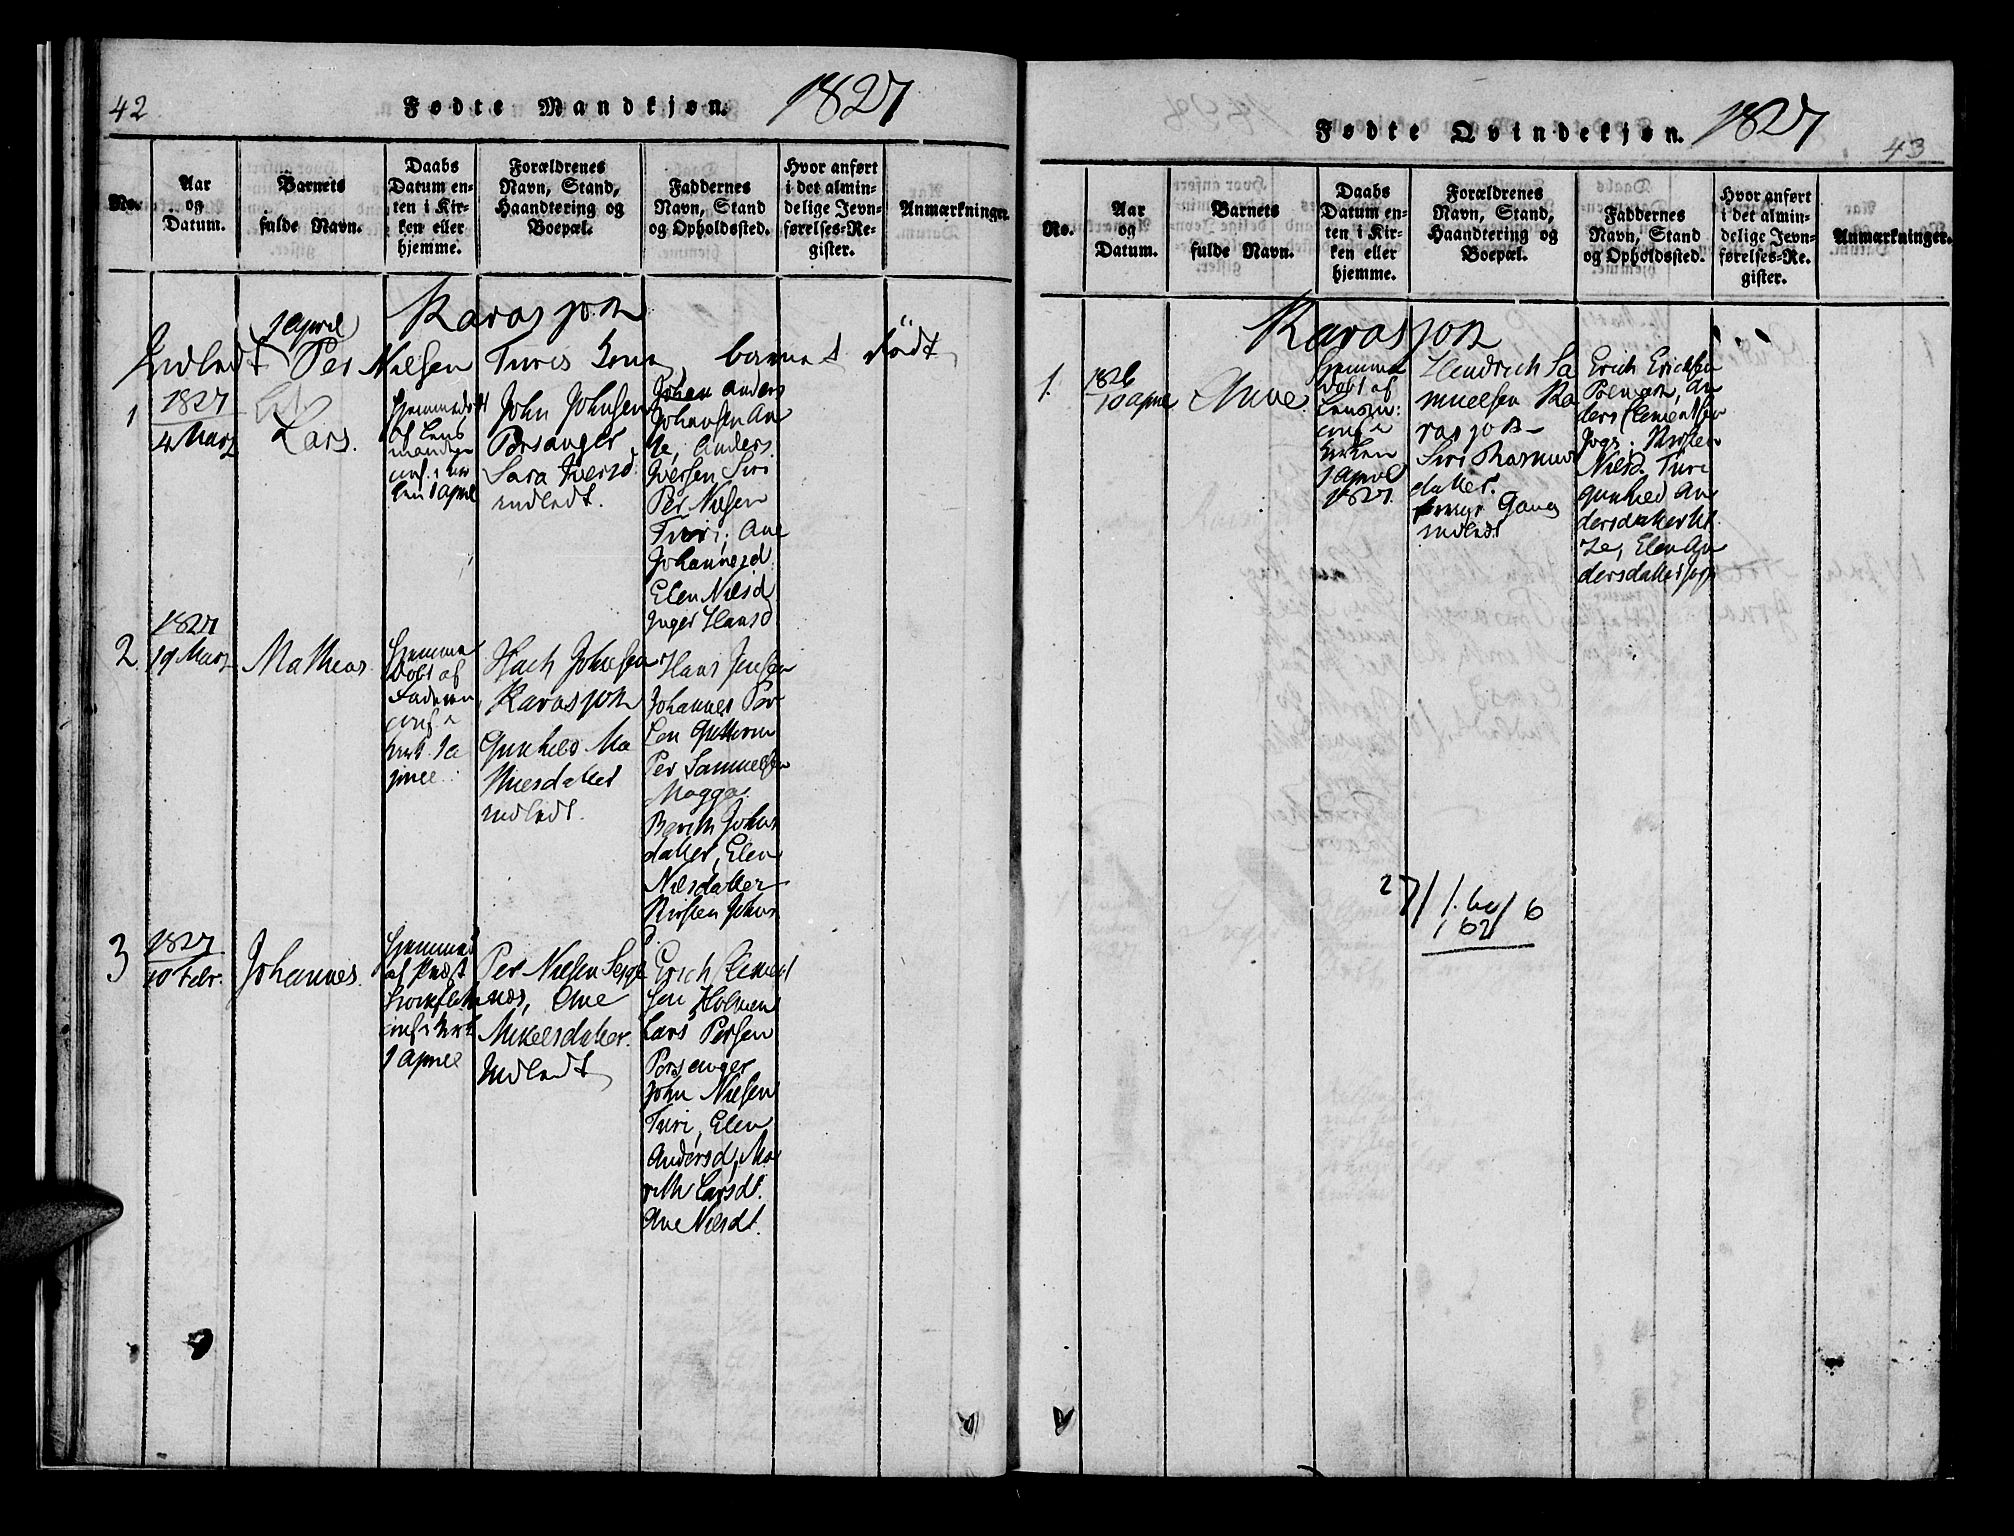 42
Fødte Mandkjøn. 1827
No.
Aar
og
Datum.
Barnets
fulde Navn.
Daabs
Datum en-
ten i Kir-
ken eller
hjemme.
Forældrenes
Navn, Stand,
Haandtering og
Boepæl.
Faddernes
Navn, Stand
og Opholdssted.
Hvor anført
i det almin-
delige Jevn-
førelses-Re-
gister.
Anmærkninger.
Karasjok
1 April
Indledt Per Nielsen Turis Kone, barnet dödt
1
1827
4 Marz
Lars.
Hjemmedöbt
af Lens
manden
conf. i kir
ken 1 April
John Johnsen
Porsanger
Sara Iversd.
indledt.
Johan Anders
Johansen An
ne, Anders
Iversen Siri
Per Nielsen
Turi; Ane
Johannesd
Elen Nielsd
Inger Hansd
2.
1827
19 Marz
Mathias
Hjemme
döbt af
Faderen
conf i
kirk. 1 a
pril.
Johnsen
Karasjok
Gunhild Ma
thiesdatter
indledt.
Hans Jensen
Johannes Per
sen Guttorm
Per Samuelsen
Magga
Berith Johns
datter, Elen
Nielsdatter
Kirsten Johns
3
1827
10 Febr.
Johannes.
Hjemmed
af Præst
Stockfleth
conf i kirk
1 April
Per Nielsen
næs, Ane
Mikelsdatter.
Indledt
Erich Clemet
sen Holmen
Lars Persen
Porsanger
John Nielsen
Turi, Elen
Andersd, Ma
rith Larsdt.
Ane Nielsdt.
Fødte Qvindekjøn. 1827
43
No.
Aar
og
Datum.
Barnets
fulde Navn.
Daabs
Datum en-
ten i Kir-
ken eller
hjemme.
Forældrenes
Navn, Stand,
Haandtering og
Boepæl.
Faddernes
Navn, Stand
og Opholdssted.
Hvor anført
i det almin-
delige Jevn-
førelses-Re-
gister.
Anmærkninger.
Karasjok
1.
1826
10 April
Anne
Hjemme
döbt af
Lensm:
conf i
kirken
1 April
1827.
Hendrich Sa
muelsen Ka
rasjok
Siri Rasmus
datter.
Gang
indledt
Erich Erichsen
Polmak, An
ders Clementsen
Jogs; Kirsten
Nielsd. Turi
Gunhild An
dersdatter Ut
ze, Elen An
dersdatter
27/ 160/ 6
162